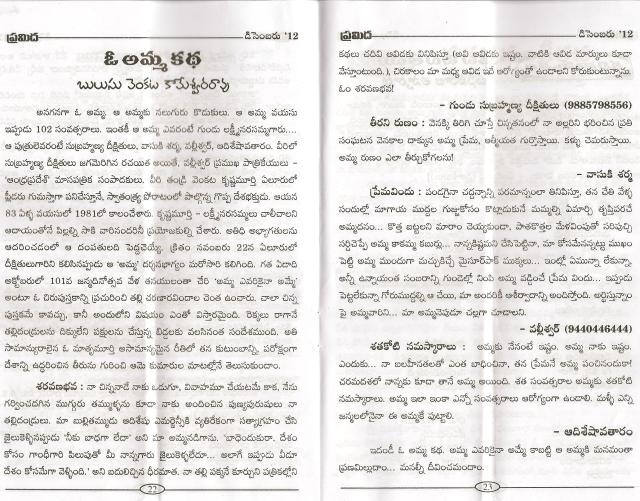 ప్రమిద
డిసెంబరు '12
ఓ అమ్మ కథ
బులుసు వెంకట కామేశ్వరరావు
అనగనగా ఓ అమ్మ. ఆ అమ్మకు నలుగురు కొడుకులు. ఆ అమ్మ వయసు
ఇప్పుడు 102 సంవత్సరాలు. ఇంతకీ ఆ అమ్మ ఎవరంటే గుండు లక్ష్మీనరసమ్మగారు....
ఆ పుత్రులెవరంటే సుబ్రహ్మణ్య దీక్షితులు, వాసుకి శర్మ, వల్లీశ్వర్, ఆదిశేషావతారం. వీరిలో
సుబ్రహ్మణ్య దీక్షితులు జగమెరిగిన రచయిత అయితే, వల్లీశ్వర్ ప్రముఖ పాత్రికేయులు -
'ఆంధ్రప్రదేశ్' మాసపత్రిక సంపాదకులు. వీరి తండ్రి వెంకట కృష్ణమూర్తి ఏలూరులో
ప్లీడరు గుమస్తాగా పనిచేస్తూనే, స్వాతంత్ర్య పోరాటంలో పాల్గొన్న గొప్ప దేశభక్తుడు. ఆయన
83 ఏళ్ల వయసులో 1981లో కాలంచేశారు. కృష్ణమూర్తి - లక్ష్మీనరసమ్మలు చాలీచాలని
ఆదాయంతోనే పిల్లల్ని సాకి వారినందరినీ ప్రయోజకుల్ని చేశారు. అతిథి అభ్యాగతులను
ఆదరించడంలో ఆ దంపతులది పెద్దచెయ్యే. క్రితం నవంబరు 22న ఏలూరులో
దీక్షితులుగారిని కలిసినప్పుడు ఆ 'అమ్మ' దర్శనభాగ్యం మరోసారి కలిగింది. గత ఏడాది
అక్టోబరులో 101వ జన్మదినోత్సవ వేళ తనయులంతా చేరి 'అమ్మ ఎవరికైనా అమ్మే'
అంటూ ఓ చిరుపుస్తకాన్ని ప్రచురించి తల్లి చరణారవిందాల చెంత ఉంచారు. చాలా చిన్న
పుస్తకమే కావచ్చు, కానీ అందులోని విషయం ఎంతో విస్తారమైంది. రెక్కలు రాగానే
తల్లిదండ్రులను దిక్కులేని పక్షులను చేస్తున్న బిడ్డలకు వలసినంత సందేశముంది. అతి
సామాన్యురాలైన ఓ మాతృమూర్తి అసామాన్యమైన రీతిలో తన కుటుంబాన్ని, పరోక్షంగా
దేశాన్ని ఉద్ధరించిన తీరును గురించి ఆమె కుమారుల మాటల్లోనే తెలుసుకుందాం.
శరవణభవ : నా చిన్ననాడే నాకు ఒడుగూ, వివాహమూ చేయటమే కాక, నేను
గర్వించదగిన ముగ్గురు తమ్ముళ్లను కూడా నాకు అందించిన పుణ్యపురుషులు నా
తల్లిదండ్రులు. మా బుల్లితమ్ముడు ఆదిశేషు ఎమర్జెన్సీకి వ్యతిరేకంగా సత్యాగ్రహం చేసి
జైలుకెళ్లినప్పుడు 'నీకు బాధగా లేదా' అని మా అమ్మనడిగాను. 'బాధెందుకురా. దేశం
కోసం గాంధీగారి పిలుపుతో మీ నాన్నగారు జైలుకెళ్లలేదూ... అలాగే ఇప్పుడు వీడూ
దేశం కోసమేగా వెళ్లింది.' అని బదులిచ్చిన ధీరమాత. నా తల్లి పక్కనే కూర్చుని పత్రికల్లోని
22
ప్రమిద
డిసెంబరు '12
కథలు చదివి ఆవిడకు వినిపిస్తూ (అవి ఆవిడకు ఇష్టం. వాటికి ఆవిడ మార్కులు కూడా
వేస్తుంటుంది.), చిరకాలం మా మధ్య ఆవిడ ఇదే ఆరోగ్యంతో ఉండాలని కోరుకుంటున్నాను.
ఓం శరవణభవ!
- గుండు సుబ్రహ్మణ్య దీక్షితులు (9885798556)
తీరని రుణం : వెనక్కి తిరిగి చూస్తే చిన్నతనంలో నా అల్లరిని భరించిన ప్రతి
సంఘటన వెనకాల దాక్కున్న అమ్మ ప్రేమ, ఆత్మీయత గుర్తొస్తాయి. కళ్ళు చెమరుస్తాయి.
అమ్మ రుణం ఎలా తీర్చుకోగలను!
- వాసుకి శర్మ
ప్రేమవిందు : పండగైనా చద్దన్నాన్ని పరమాన్నంలా తినిపిస్తూ, తన చేతి వేళ్ళ
సందుల్లో మాగాయ ముద్దల గుజ్జుకోసం కొట్లాడుకునే మమ్మల్ని ఏమార్చి తృప్తిపరచే
అమ్మదనం... కొత్త బట్టలని మారాం చెయ్యకుండా, పాతకోత్తల మేళవింపుతో సరిపుచ్చి
సర్దిచెప్పే అమ్మ కాకమ్మ కబుర్లు... నాన్నకిష్టమని చేసిపెట్టినా, మా కోసమేనన్నట్టు ముఖం
పెట్టి అమ్మ ముందుగా మచ్చుకిచ్చే మైసూర్‌పాక్ ముక్కలు... ఇంట్లో ఏమున్నా లేకున్నా,
అన్నీ ఉన్నాయంత సంబరాన్ని గుండెల్లో నింపే అమ్మ వడ్డించే ప్రేమ విందు... ఇప్పుడు
పెట్టలేకున్నా గోరుముద్దల్ని ఆ చేయి, మా అందరికీ ఆశీర్వాదాన్ని అందిస్తోంది. అర్థిస్తున్నాం
పై అమ్మవారిని... మా అమ్మనెపుడూ చల్లగా చూడాలని.
- వల్లీశ్వర్ (9440446444)
శతకోటి నమస్కారాలు : అమ్మకు నేనంటే ఇష్టం. అమ్మే నాకు ఇష్టం.
ఎందుకు... నా బలహీనతలతో ఎంత బాధించినా, తన ప్రేమనే అమ్మ పంచినందుకా!
చరమదశలో నాన్నకు కూడా తానే అమ్మ అయింది. శత సంవత్సరాల అమ్మకు శతకోటి
నమస్కారాలు. అమ్మ ఇలా ఇంకా ఎన్నో సంవత్సరాలు ఆరోగ్యంగా ఉండాలి. మళ్ళీ ఎన్ని
జన్మలలోనైనా ఈ అమ్మకే పుట్టాలి.
- ఆదిశేషావతారం
ఇదండీ ఓ అమ్మ కథ. అమ్మ ఎవరికైనా అమ్మే కాబట్టి ఆ అమ్మకి మనమంతా
ప్రణమిల్లుదాం... మనల్నీ దీవించమందాం.
23